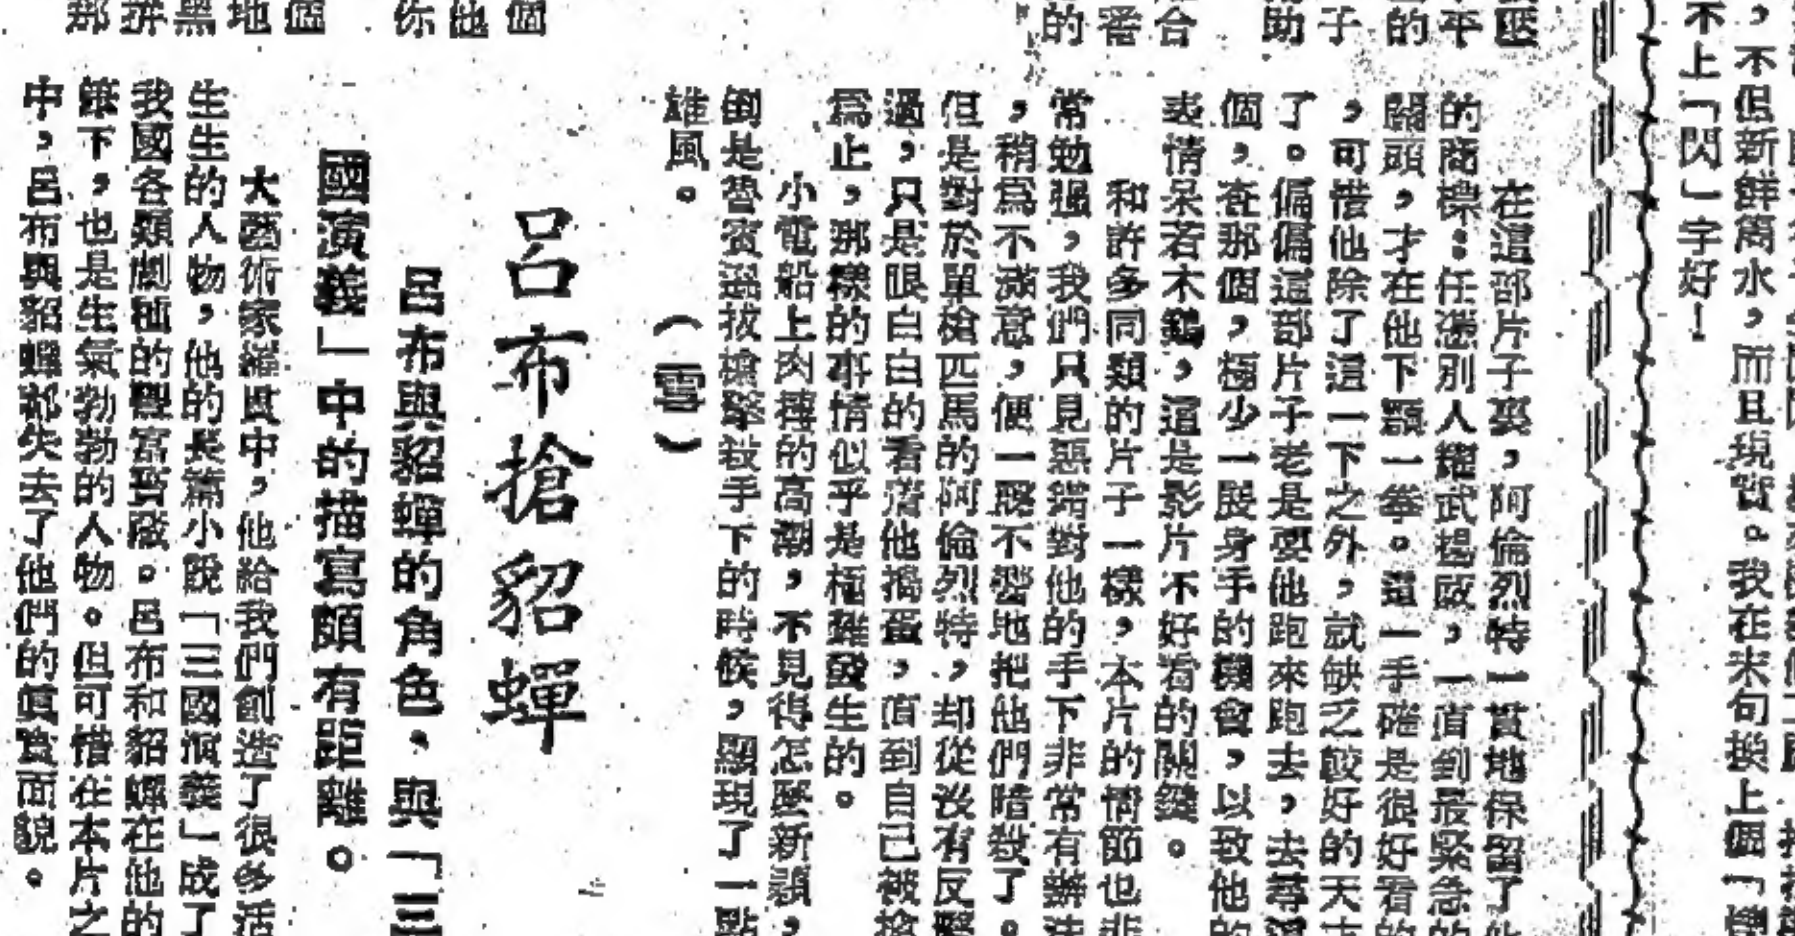 ，不但新鮮簡水，而且現實。我在末句換上個「
不上「閃」字好！
壓
平
的
子
助
合
番
的
個
他
你
個
地
黑
拼
那
在這部片子裏，阿倫烈特一貫地保留了他
的商標：任憑別人耀武揚威，一直到最緊急的
關頭，才在他下顎一拳。這一手確是很好看的
，可惜他除了這一下之外，就缺乏較好的天才
了。偏偏這部片子老是要他跑來跑去，去尋這
個，查那個，極少一展身手的機會，以致他的
表情呆若木鷄，這是影片不好看的關鍵。
和許多同類的片子一樣，本片的情節也非
常勉强，我們只見惡錯對他的手下非常有辦法
，稍爲不滿意，便一聲不響地把他們暗殺了。
但是對於單槍匹馬的阿倫烈特，却從沒有反擊
過，只是眼白白的看着他搗蛋，直到自己被槍
爲止，那樣的事情似乎是極難發生的。
小電船上肉搏的高潮，不見得怎麼新穎，
倒是魯賓遜拔槍擊殺手下的時候，顯現了一點
雄風。　（雪）
呂布搶貂蟬
呂布與貂蟬的角色，與「三
國演義」中的描寫頗有距離。
大藝術家羅貫中，他給我們創造了很多活
生生的人物，他的長篇小說「三國演義」成了
我國各類劇種的豐富寶藏。呂布和貂蟬在他的
筆下，也是生氣勃勃的人物。但可惜在本片之
中，呂布與貂蟬都失去了他們的眞實面貌。